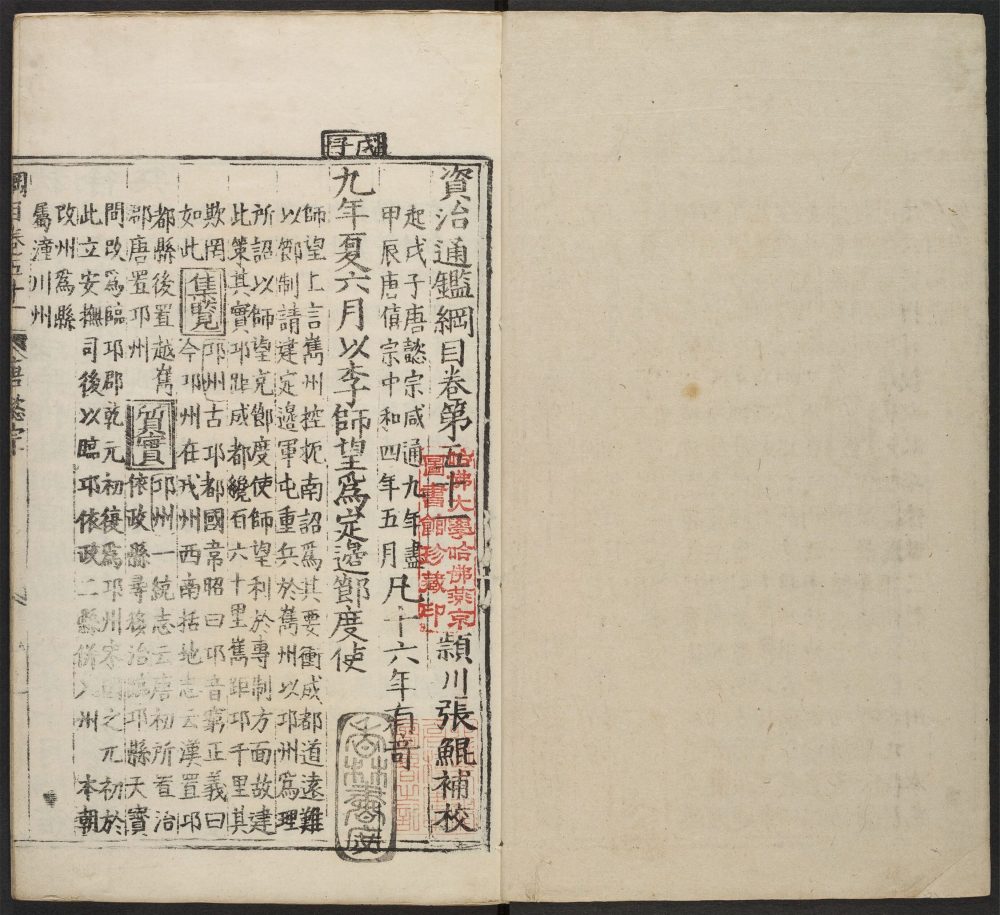 資治通鑑綱目卷第五十一
潁川張鯤補校
起戊子唐懿宗咸通九年盡
甲辰唐僖宗中和四年五月凡十六年有奇
戊子
九年夏六月以李師望爲定邊節度使
師望上言巂州控扼南詔爲其要衝成都道遠難
以節制請建定邊軍屯重兵於巂州以邛州爲理
所詔以師望充節度使師望利於專制方面故建
此策其實邛距成都纔百六十里巂距邛千里其
欺罔如此
集覽
邛州古邛都國韋昭曰邛音窮正義曰
今邛州在戎州西南括地志云漢置邛
都縣後置越巂
郡唐置邛州
質實
邛州一統志云唐初所置治
依政縣尋移治臨邛縣天寶
問改爲臨邛郡乾元初復爲邛州宋因之元初於
此立安撫司後以臨邛依政二縣併入州 本朝
改州爲縣
屬潼川州
綱目卷五十一
唐懿宗
哈佛大學哈佛燕京
圖書館珍藏印